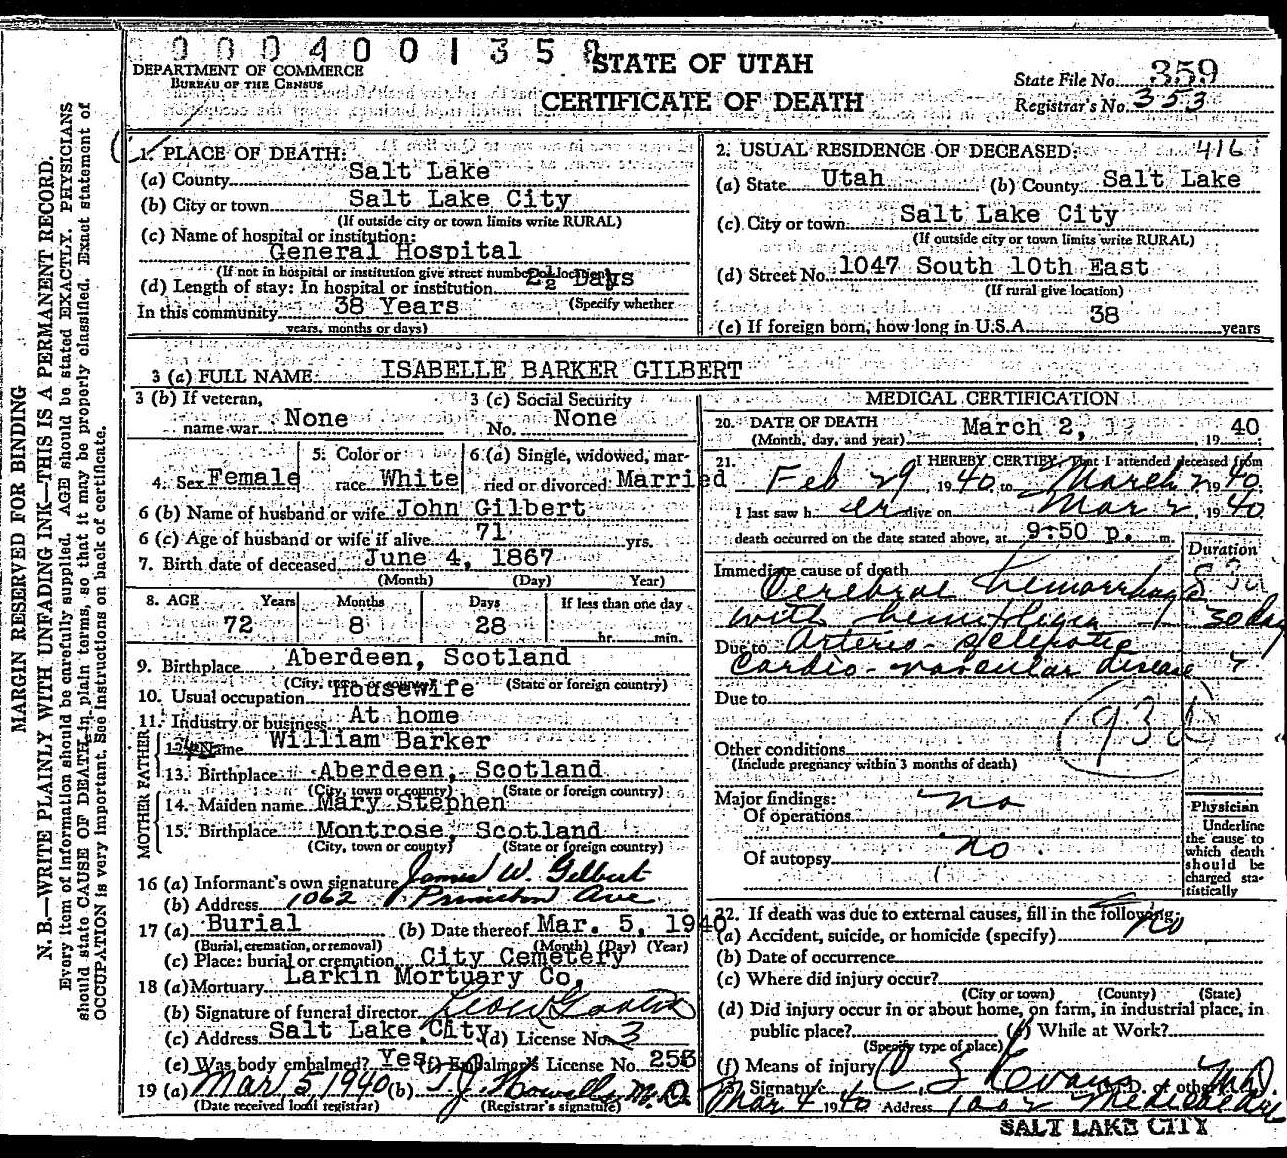 0004001350
STATE OF UTAH
DEPARTMENT OF COMMERCE
BUREAU OF THE CENSUS
CERTIFICATE OF DEATH
State File No. 359
Registrar's No. 353
MARGIN RESERVED FOR BINDING
N. B.—WRITE PLAINLY WITH UNFADING INK—THIS IS A PERMANENT RECORD.
Every item of information should be carefully supplied. AGE should be stated EXACTLY. PHYSICIANS
should state CAUSE OF DEATH in plain terms, so that it may be properly classified. Exact statement of
OCCUPATION is very important. See instructions on back of certificate.
1. PLACE OF DEATH:
(a) County Salt Lake
(b) City or town Salt Lake City
(If outside city or town limits write RURAL)
(c) Name of hospital or institution:
General Hospital
(If not in hospital or institution give street number or location)
(d) Length of stay: In hospital or institution 2½ Days
(Specify whether
In this community 38 Years
years, months or days)
2. USUAL RESIDENCE OF DECEASED: 416
(a) State Utah (b) County Salt Lake
(c) City or town Salt Lake City
(If outside city or town limits write RURAL)
(d) Street No. 1047 South 10th East
(If rural give location)
(e) If foreign born, how long in U.S.A. 38 years
3 (a) FULL NAME ISABELLE BARKER GILBERT
3 (b) If veteran,
name war None
3 (c) Social Security
No. None
4. Sex Female
5. Color or
race White
6 (a) Single, widowed, mar-
ried or divorced: Married
6 (b) Name of husband or wife John Gilbert
6 (c) Age of husband or wife if alive 71 yrs.
7. Birth date of deceased June 4, 1867
(Month) (Day) Year)
8. AGE Years Months Days If less than one day
72 8 28 hr. min.
9. Birthplace Aberdeen, Scotland
(City, town or county) (State or foreign country)
10. Usual occupation Housewife
11. Industry or business At home
FATHER
12. Name William Barker
13. Birthplace Aberdeen, Scotland
(City, town or county) (State or foreign country)
MOTHER
14. Maiden name Mary Stephen
15. Birthplace Montrose, Scotland
(City, town or county) (State or foreign country)
16 (a) Informant's own signature James W. Gilbert
(b) Address 1062 Princeton Ave
17 (a) Burial (b) Date thereof Mar. 5, 1940
(Burial, cremation, or removal) (Month) (Day) (Year)
(c) Place: burial or cremation City Cemetery
18 (a) Mortuary Larkin Mortuary Co,
(b) Signature of funeral director
(c) Address Salt Lake City (d) License No. 3
(e) Was body embalmed? Yes (f) Embalmer's License No. 256
19 (a) Mar 5, 1940 (b) T J Howells, M.D.
(Date received local registrar) (Registrar's signature)
MEDICAL CERTIFICATION
20. DATE OF DEATH
(Month, day, and year) March 2, 19 40
21. I HEREBY CERTIFY, That I attended deceased from
Feb 29, 1940 to March 2 1940
I last saw h er alive on Mar 2, 1940
death occurred on the date stated above, at 9:50 p. m.
Duration
Immediate cause of death
Cerebral hemorrhage
with hemiplegia 30 day
Due to Arterio-sclerotic
Cardio-vascular disease ?
Due to
93
Other conditions
(Include pregnancy within 3 months of death)
Major findings:
Of operations no
Of autopsy no.
Physician
Underline
the cause to
which death
should be
charged sta-
tistically
22. If death was due to external causes, fill in the following:
(a) Accident, suicide, or homicide (specify) no
(b) Date of occurrence
(c) Where did injury occur?
(City or town) (County) (State)
(d) Did injury occur in or about home, on farm, in industrial place, in
public place? (e) While at Work?
(Specify type of place)
(f) Means of injury
23. Signature C. S. Evans M.D. or other MD
Mar 4 1940 Address 1002 Medical
SALT LAKE CITY